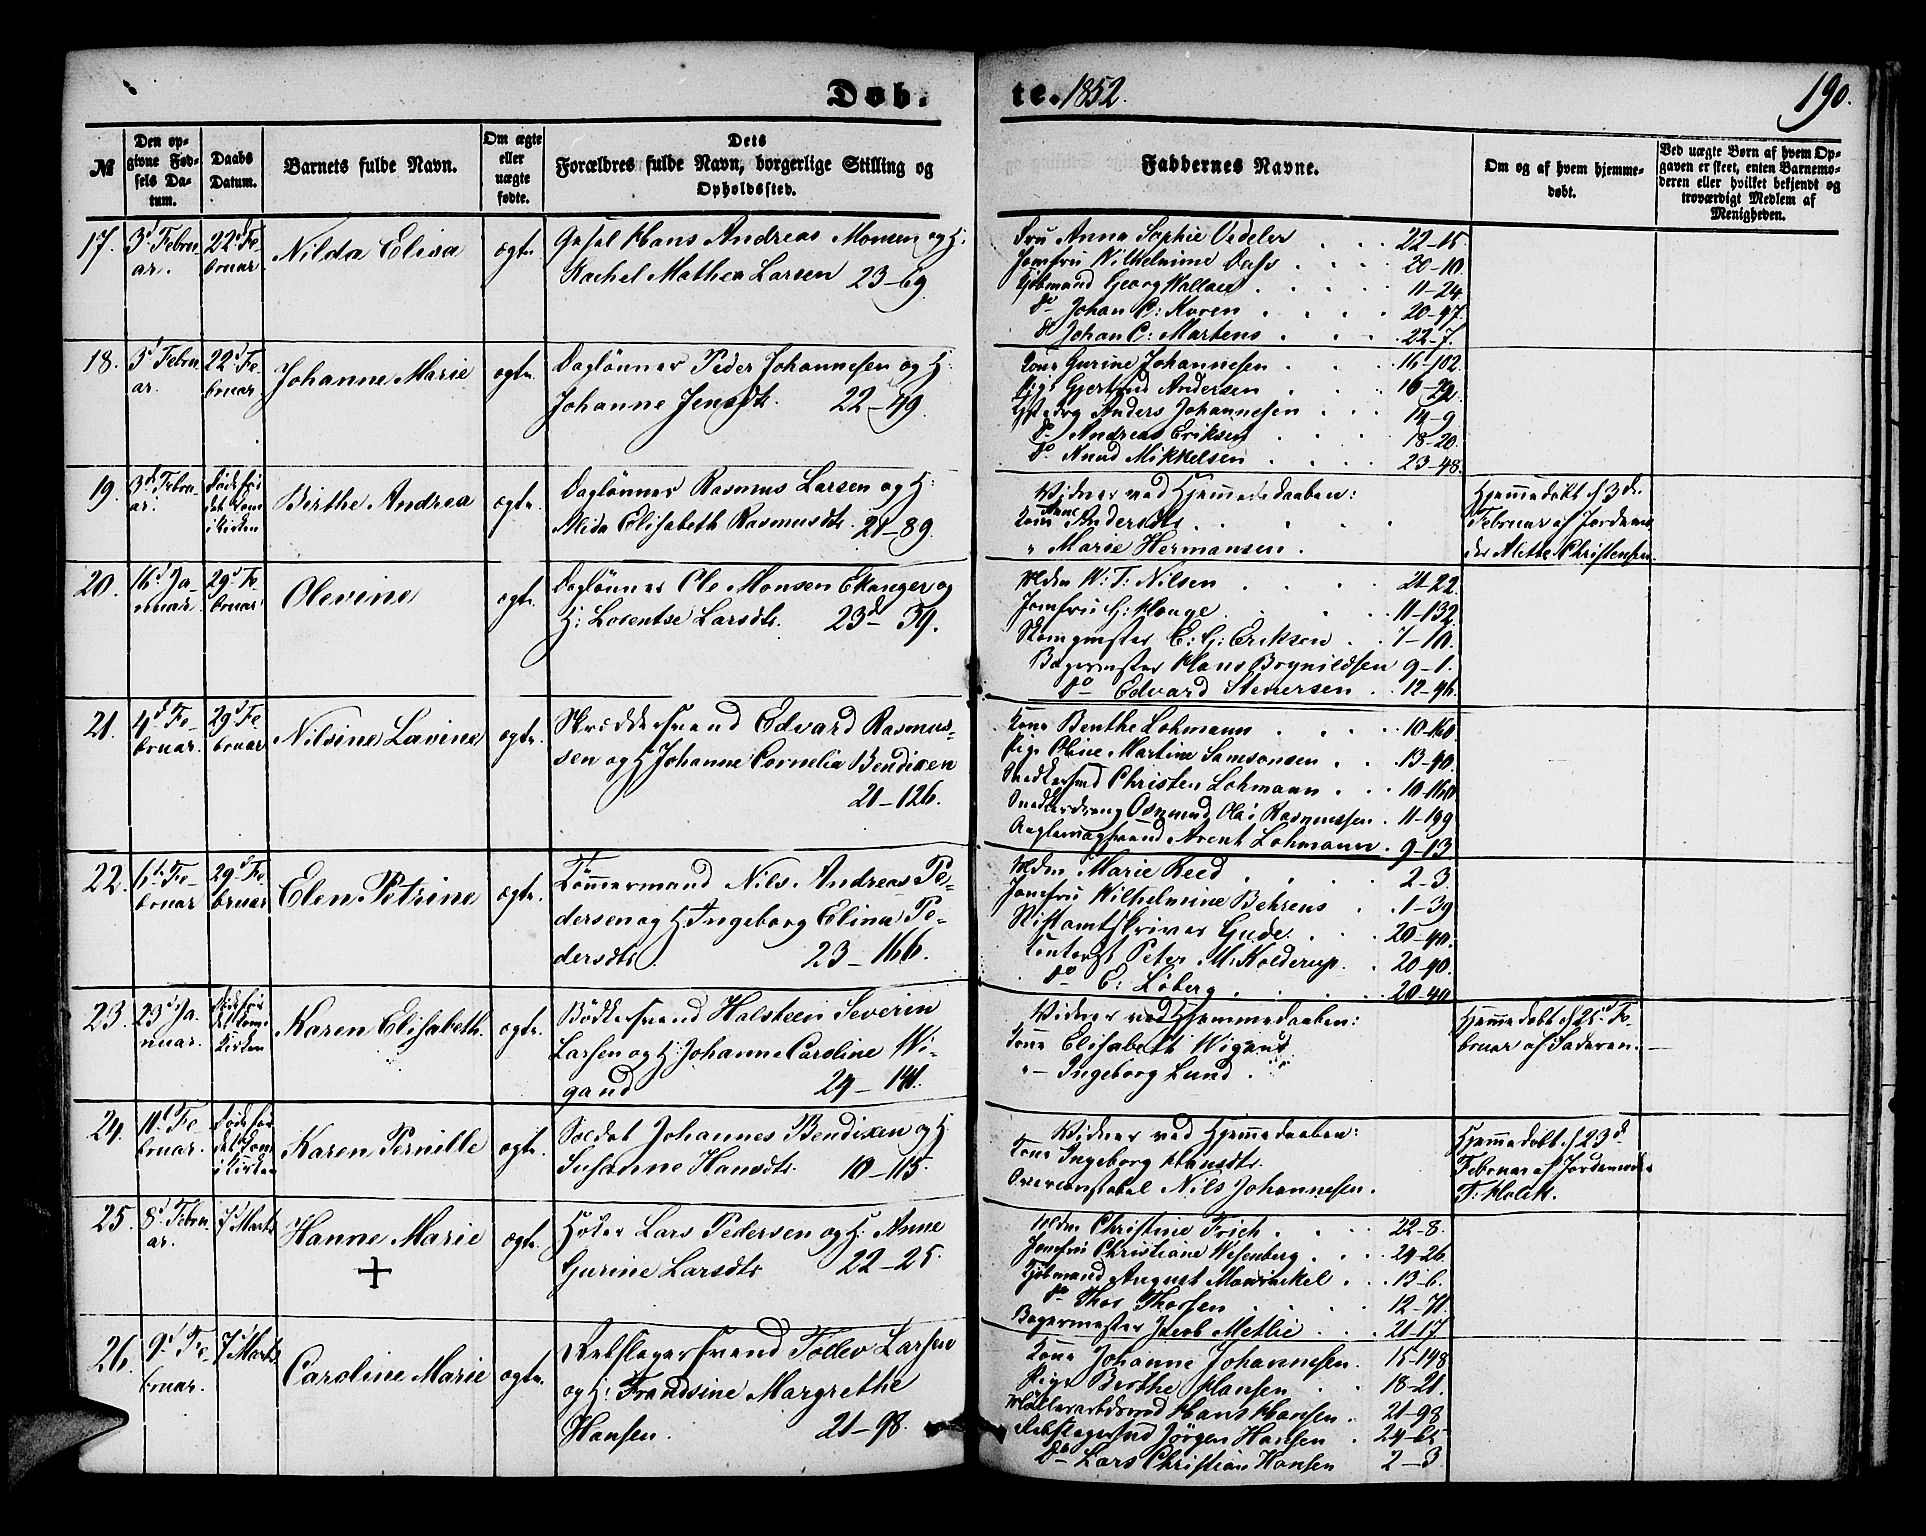 Døb.
te. 1852.
190.
№
Den op-
givne Fød-
sels Da-
tum.
Daabs
Datum.
Barnets fulde Navn.
Om ægte
eller
uægte
fødte.
Dets
Forældres fulde Navn, borgerlige Stilling og
Opholdssted.
Faddernes Navne.
Om og af hvem hjemme-
døbt.
Ved uægte Børn af hvem Op-
gaven er skeet, enten Barnemo-
deren eller hvilket bekjendt og
troværdigt Medlem af
Menigheden.
17.
3d Febru-
ar.
22d Fe-
bruar
Nilda Elisa
ægte
Hans Andreas Monsen og H:
Rachel Mathea Larsen 23-69.
Fru Anna Sophie Vedeler 22-15
Jomfru Wilhelmine Dass 20-10.
Kjøbmand Georg Wallace 11-24.
do Johan C: Koren 20-97.
do Johan C: Martens 22-7.
18.
3d Febru-
ar.
22d Fe-
bruar.
Johanne Marie
ægte
Daglønner Peder Johannesen og H:
Johanne Jensdtr. 22-49.
Kone Gurine Johannesen 16-102.
Pige Gjertrud Andersen 16-22.
Anders Johannesen 14-9
do Andreas Eriksen 18-20.
do Knud Mikkelsen 23-48.
19.
3d Febru-
ar.
Døde før
det kom
i Kirken
Birthe Andrea
ægte
Daglønner Rasmus Larsen og H:
Elisabeth Rasmusdtr. 21-89.
Vidner ved Hjemmedaaben:
Kone Andersdtr.
" Marie Hermansen.
Hjemmedøbt d 3de
Februar af Jordemo-
der Alette Christensen.
20.
16d Ja-
nuar.
29d Fe-
bruar
Olevine
ægte
Daglønner Ole Monsen Ekanger og
H: Lorentse Larsdtr. 23d-39.
Mdm W: T: Nilsen 21-22.
Jomfru G: Hauge 11-132.
E: G: Eriksen 7-10.
Bagermester Hans Brynildsen 9-1.
do Edvard Stenersen 12-96.
21.
4d Fe-
bruar.
29d Fe-
bruar
Nilsine Lavine
ægte.
Skræddersvend Edvard Rasmus-
sen og H Johanne Cornelia Bendixen
21-126.
Kone Benthe Lohmann 10-160.
Pige Oline Martine Samsonsen 13-90.
Snedkersvd Christen Lohmann 10-160
Snedkerdreng Osmund Olai Rasmussen 11-199
Arent Lohmann 9-13
22.
6d Fe-
bruar
29d Fe-
bruar
Elen Petrine
ægte.
Tømmermand Nils Andreas Pe-
dersen og H Ingeborg Elina Pe-
dersdtr. 23-166.
Mdm Marie Reed 2-3.
Jomfru Wilhelmine Behrens 1-39
Stiftamtskriver Gude 20-40.
Contorist Peter M: Kolderup 20-90.
do E: Løberg 20-40
23.
23d Ja-
nuar.
Døde før
det kom i
Kirken
Karen Elisabeth.
ægte.
Bødkersvend Halsteen Severin
Larsen og H: Johanne Caroline Wi-
gand 24-141.
Vidner ved Hjemmedaaben:
Kone Elisabeth Wigand
"- Ingeborg Lund.
Hjemmedøbt d 25d Fe-
bruar af Faderen.
24.
11d Fe-
bruar.
Døde før
det kom
i Kirken
Karen Pernille
ægte.
Soldat Johannes Bendixen og H
Susanne Hansdtr. 10-115.
Vidner ved Hjemmedaaben:
Kone Ingeborg Hansdtr.
Overconstabel Nils Johannesen.
Hjemmedøbt d 23d
Februar af Jordemoder
T: Holck.
25.
8d Febru-
ar.
7d Marts
Hanne Marie
ægte.
Lars Pedersen og H: Anne
Gurine Larsdtr. 22-25.
Mdm Christine Frich 22-8.
Jomfru Christiane Wesenberg 24-26
Kjøbmand August Mowinckel 13-6.
do Thor Thorsen 12-71.
Bagermester Jacob Metlie 21-17
26.
9d Fe-
bruar.
7d Marts
Caroline Marie
ægte.
Rebslagersvend Tollev Larsen
og H: Frandsine Margrethe
Hansen. 21-98.
Kone Johanne Johannesen 15-148
Pige Berthe Hansen 18-21.
Hans Hansen 21-98
Rebslagersvd Jørgen Hansen 24-65
do Lars Christian Hansen 2-3